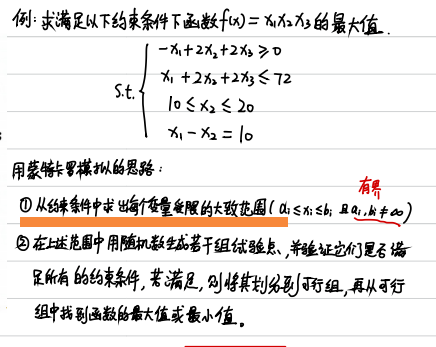 例：求满足以下约束条件下函数f(x)=x₁x₂x₃的最大值.
-x₁+2x₂+2x₃≥0
x₁+2x₂+2x₃≤72
s.t.
10≤x₂≤20
x₁-x₂=10
用蒙特卡罗模拟的思路：
有界
①从约束条件中求出每个变量受限的大致范围(aᵢ≤xᵢ≤bᵢ 且aᵢ,bᵢ≠∞)
②在上述范围中用随机数生成若干组试验点、并验证它们是否满
足所有的约束条件，若满足，则将其划分到可行组，再从可行
组中找到函数的最大值或最小值。